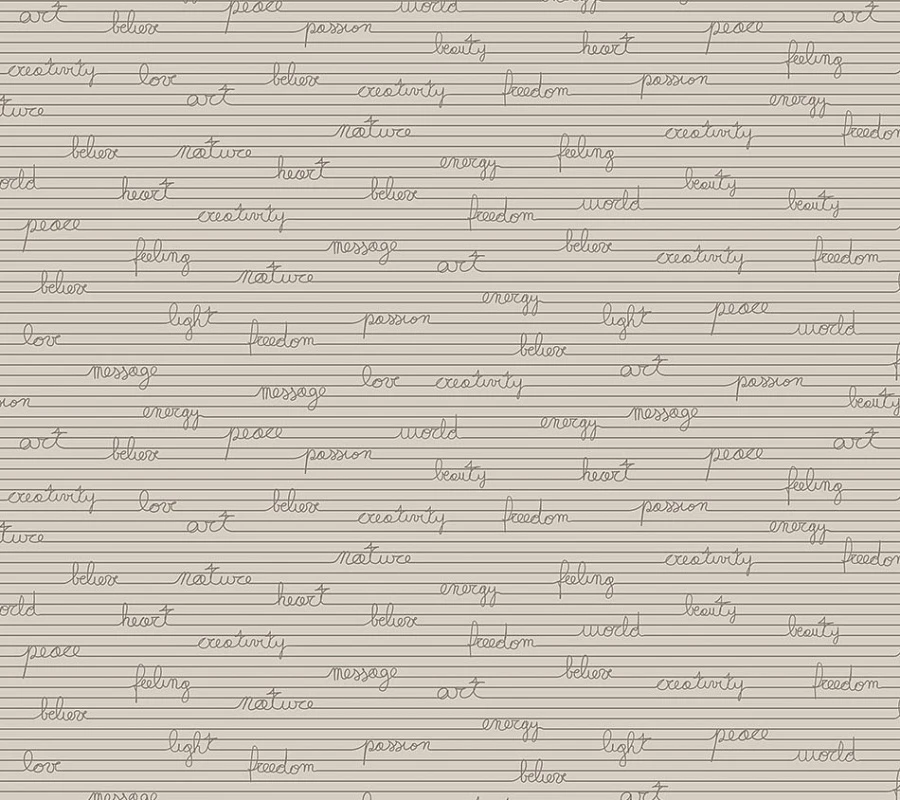 art believe peace passion world energy peace art
beauty heart feeling
creativity love believe creativity freedom passion
art energy
ture nature creativity freedom
believe nature heart energy feeling
orld heart believe beauty
creativity freedom world beauty
peace feeling message believe
art creativity freedom
believe nature energy
light passion light peace world
love freedom believe
message love creativity art passion
sion message beauty
energy energy message
art believe peace passion world peace art
beauty heart feeling
creativity love believe creativity freedom passion
art energy
ture nature creativity freedom
believe nature heart energy feeling
orld heart believe beauty
creativity freedom world beauty
peace feeling message believe
art creativity freedom
believe nature energy
light passion light peace world
love freedom believe
message art